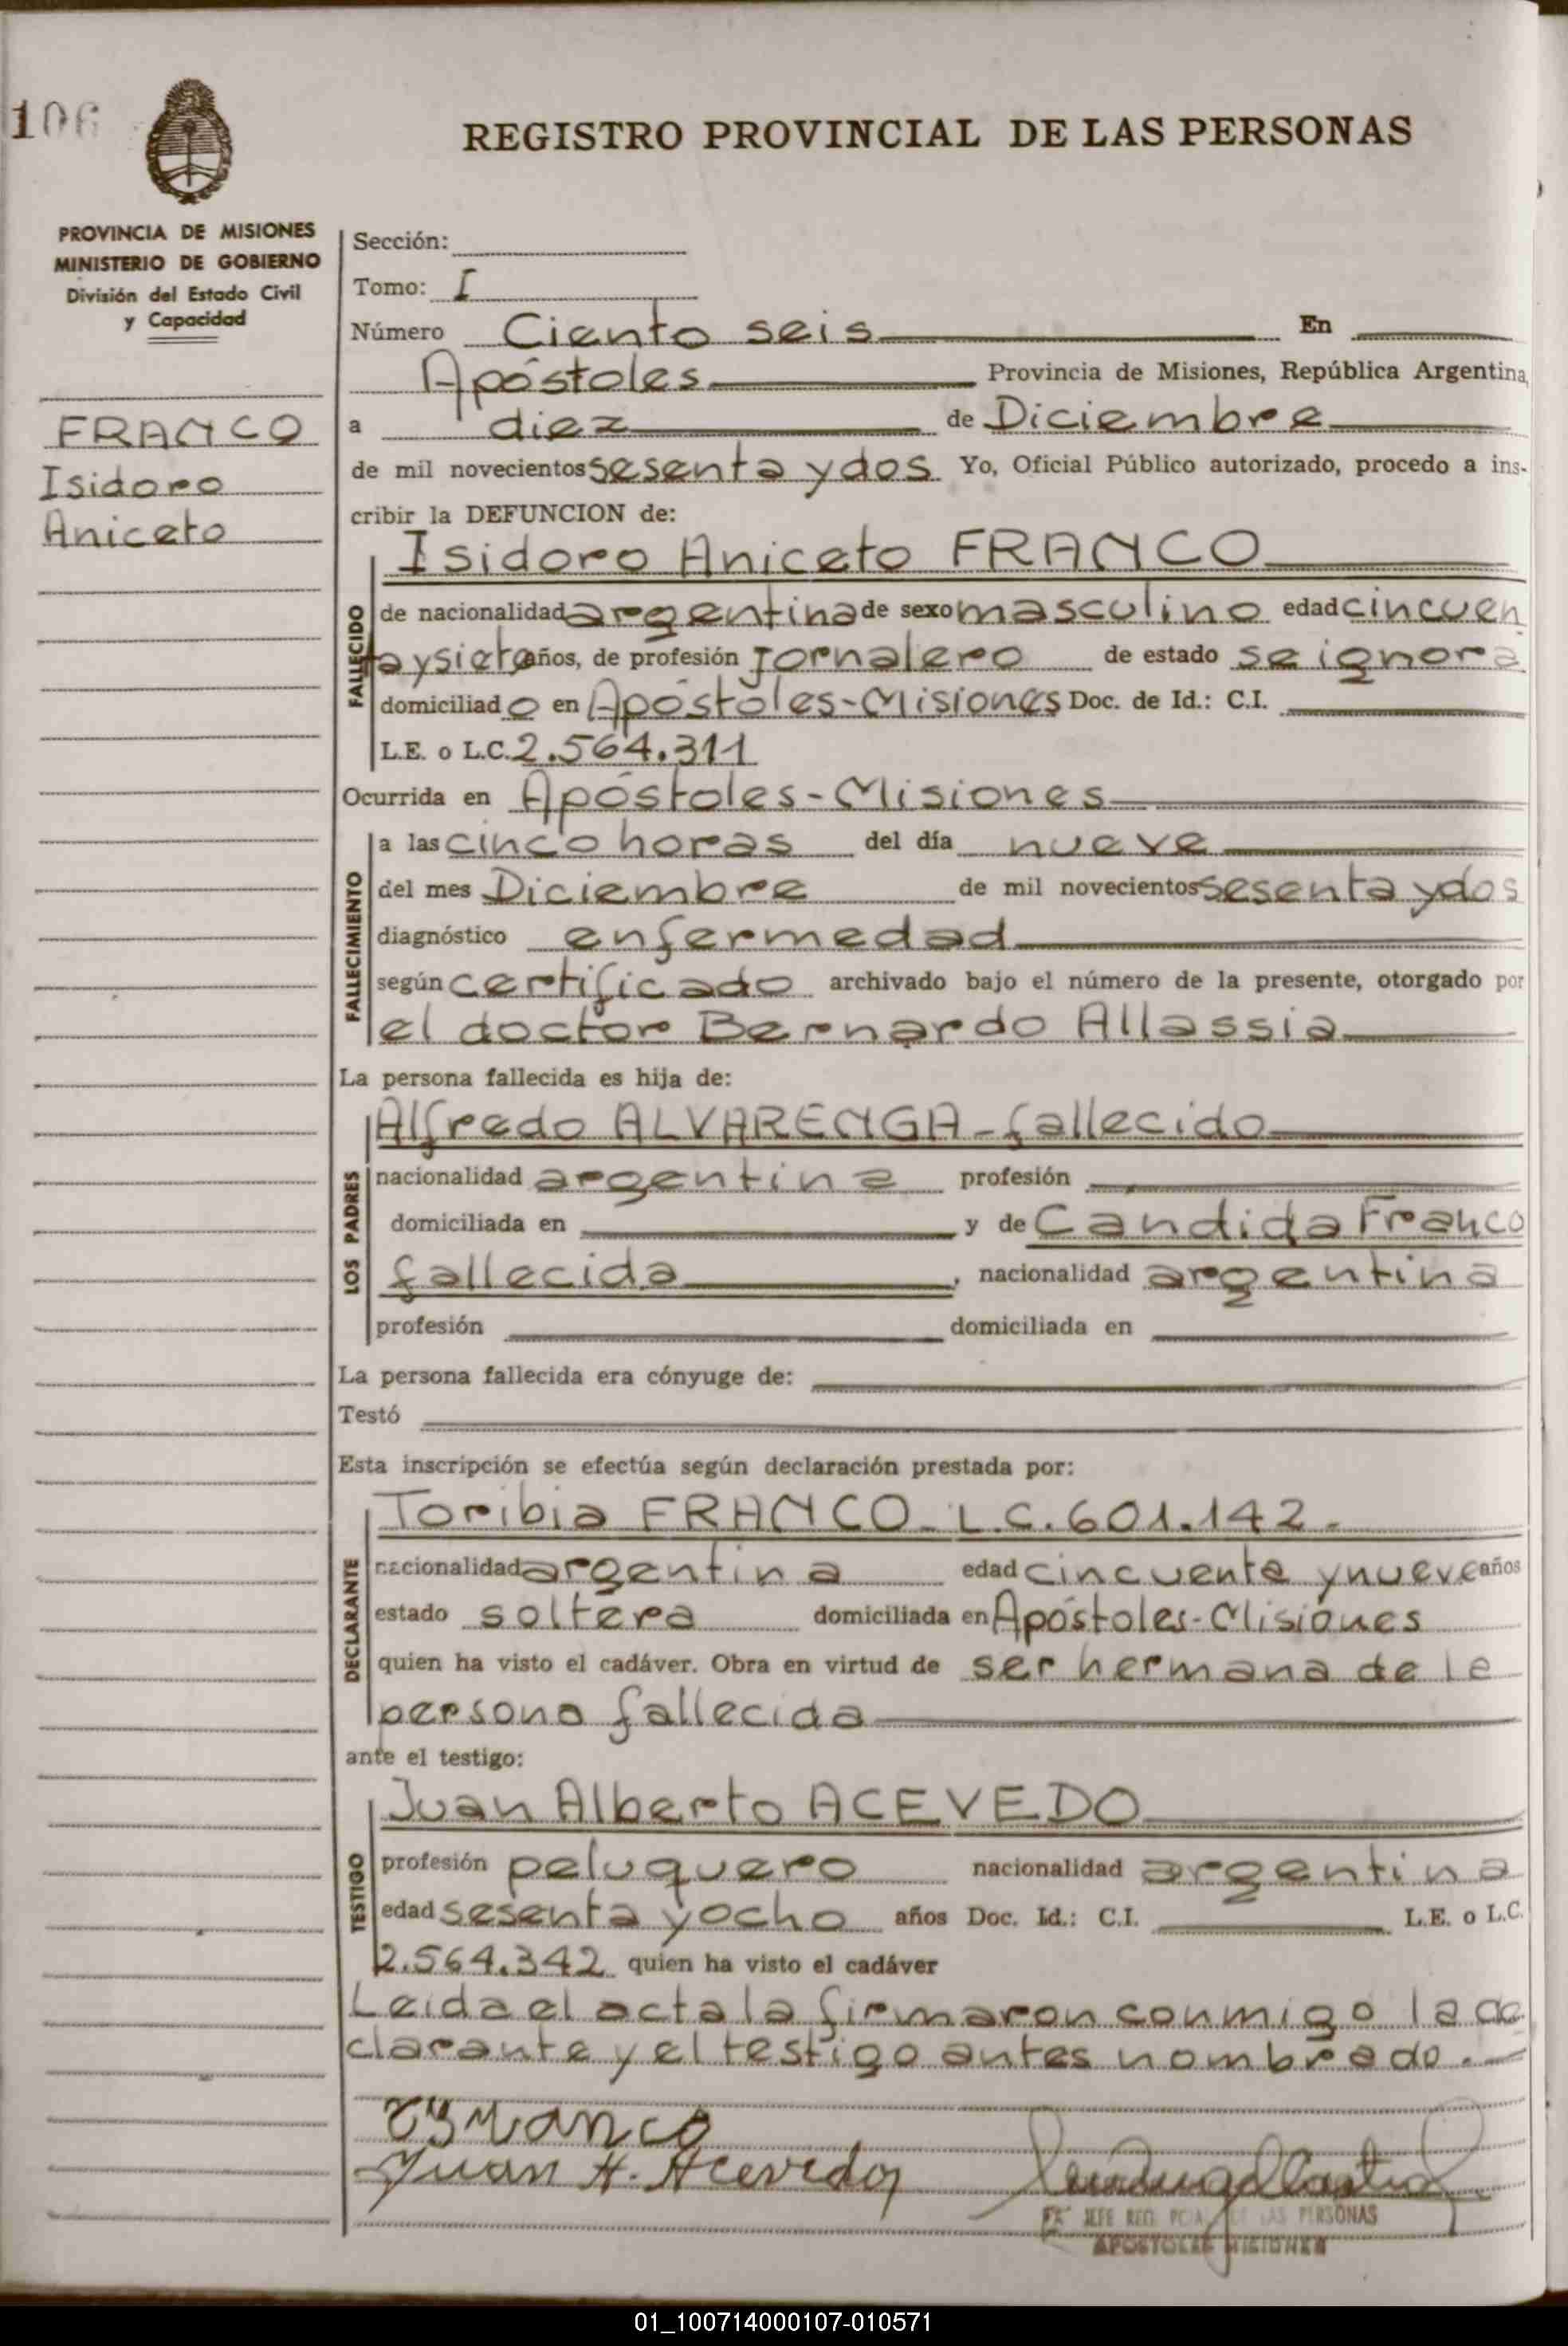 106
REGISTRO PROVINCIAL DE LAS PERSONAS
PROVINCIA DE MISIONES
MINISTERIO DE GOBIERNO
División del Estado Civil
y Capacidad
FRANCO
Isidoro
Aniceto
Sección:
Tomo: I
Número Ciento seis En
Apóstoles Provincia de Misiones, República Argentina,
a diez de Diciembre
de mil novecientos sesenta y dos Yo, Oficial Público autorizado, procedo a ins-
cribir la DEFUNCION de:
Isidoro Aniceto FRANCO
FALLECIDO
de nacionalidad argentina de sexo masculino edad cincuen
ta y siete años, de profesión Jornalero de estado se ignora
domiciliado en Apóstoles-Misiones Doc. de Id.: C.I.
L.E. o L.C. 2.564.311
Ocurrida en Apóstoles-Misiones
FALLECIMIENTO
a las cinco horas del día nueve
del mes Diciembre de mil novecientos sesenta y dos
diagnóstico enfermedad
según certificado archivado bajo el número de la presente, otorgado por
el doctor Bernardo Allassia
La persona fallecida es hija de:
LOS PADRES
Alfredo ALVARENGA-fallecido
nacionalidad argentina profesión
domiciliada en y de Candida Franco
fallecida, nacionalidad argentina
profesión domiciliada en
La persona fallecida era cónyuge de:
Testó
Esta inscripción se efectúa según declaración prestada por:
DECLARANTE
Toribia FRANCO-L.C.601.142.
nacionalidad argentina edad cincuenta y nueve años
estado soltera domiciliada en Apóstoles-Misiones
quien ha visto el cadáver. Obra en virtud de ser hermana de la
persona fallecida
ante el testigo:
TESTIGO
Juan Alberto ACEVEDO
profesión peluquero nacionalidad argentina
edad sesenta y ocho años Doc. Id.: C.I. L.E. o L.C.
2.564.342 quien ha visto el cadáver
Leída el acta la firmaron conmigo la de
clarante y el testigo antes nombrado.
Juan A. Acevedo
JEFE REG. PCIAL. DE LAS PERSONAS
APOSTOLES MISIONES
01_100714000107-010571